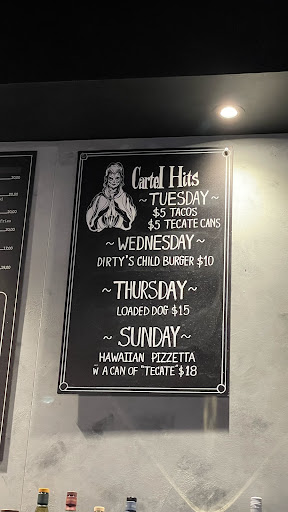 Cartel Hits
~TUESDAY~
$5 TACOS
$5 TECATE CANS
~WEDNESDAY~
DIRTY'S CHILD BURGER $10
~THURSDAY~
LOADED DOG $15
~SUNDAY~
HAWAIIAN PIZZETTA
W A CAN OF "TECATE" $18